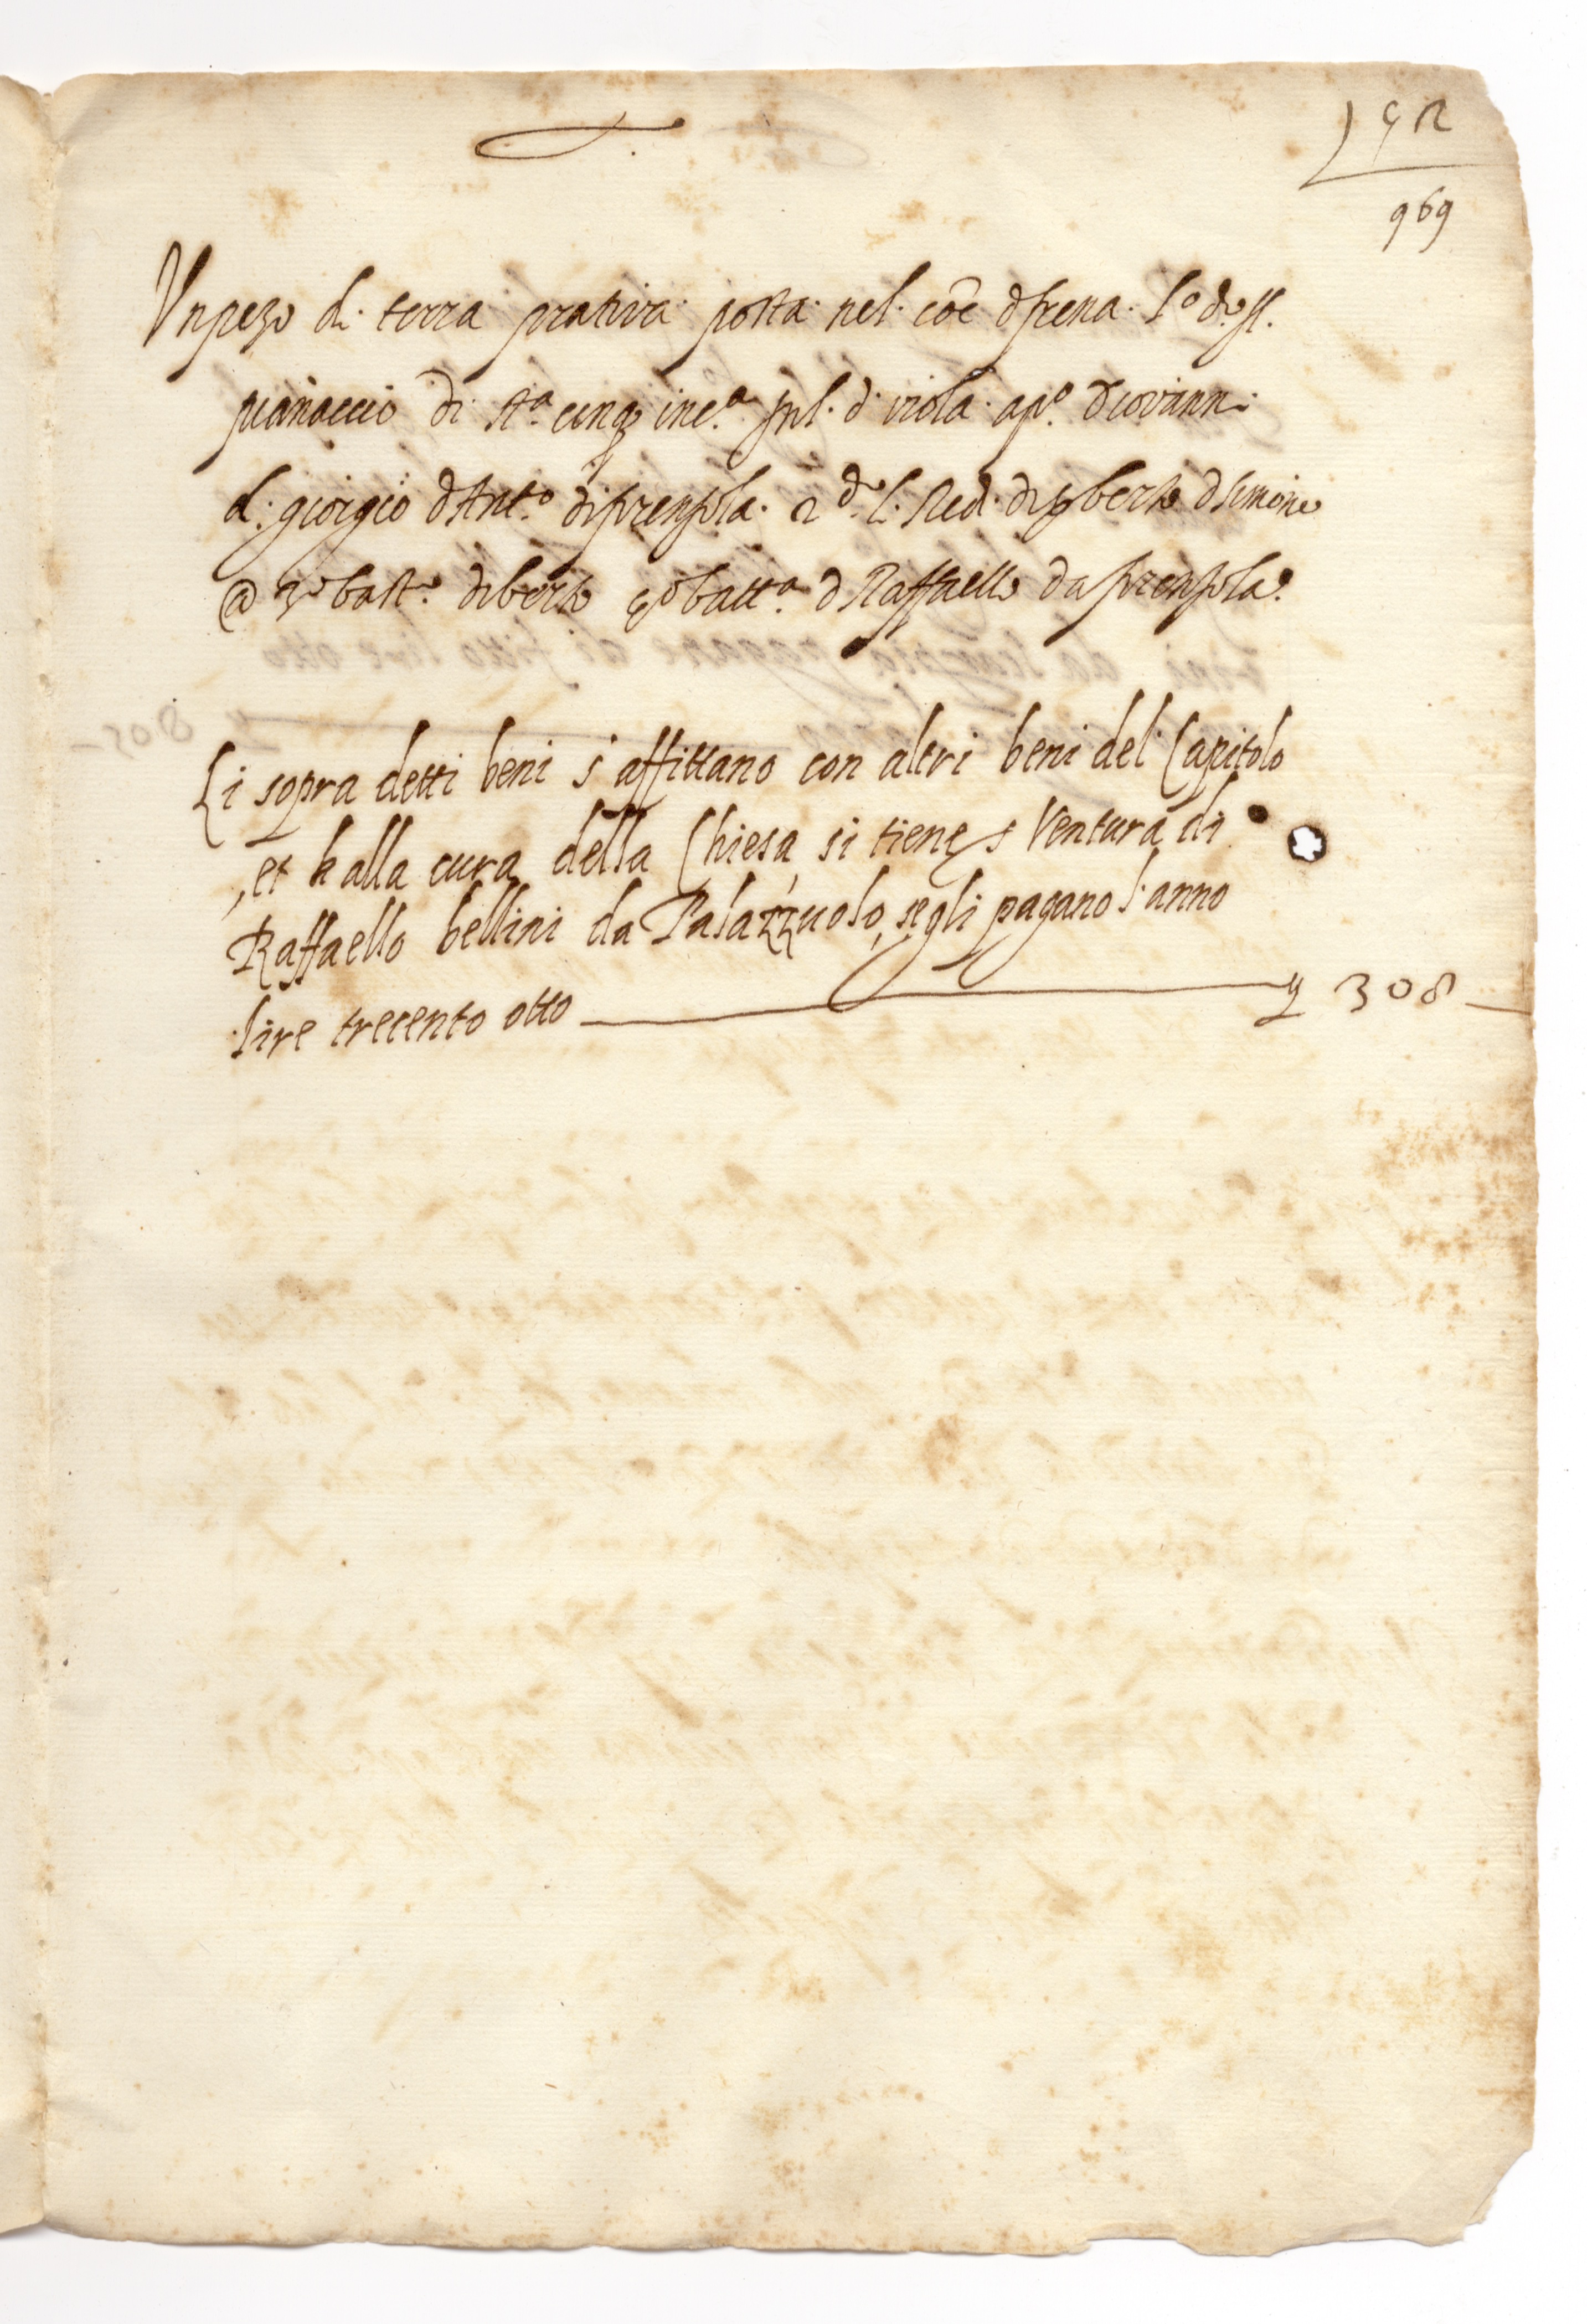 52
969
Un pezo di terra prativa posta nel coe d frena l.o d.o il
pianaccio di st.a cinq inc.a d viola ap.o Giovanni
di giorgio d Ant.o di frenzola 2.o l Red di berto d simone
3.o bast.o di berto 4.o batt.a d Raffaello da frenzola
Li sopra detti beni s'affittano con altri beni del Capitolo
et alla cura della Chiesa si tiene Ventura di
Raffaello bellini da Palazzuolo, segli pagano l'anno
lire trecento otto 308